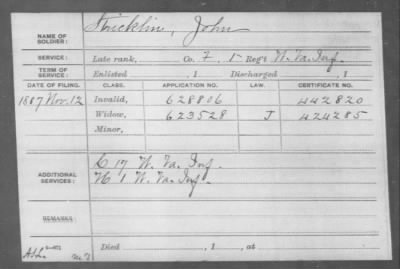 NAME OF SOLDIER: Stricklin, John
SERVICE: Late rank, Co. F. 1 Reg't W. Va. Inf.
TERM OF SERVICE: Enlisted , 1 Discharged , 1
DATE OF FILING. CLASS. APPLICATION NO. LAW. CERTIFICATE NO.
1887 Nov. 12 Invalid, 628806 442820
Widow, 623528 J 424285
Minor,
ADDITIONAL SERVICES: C 17 W. Va. Inf.
H 1 W. Va. Inf.
REMARKS:
Died , 1 , at